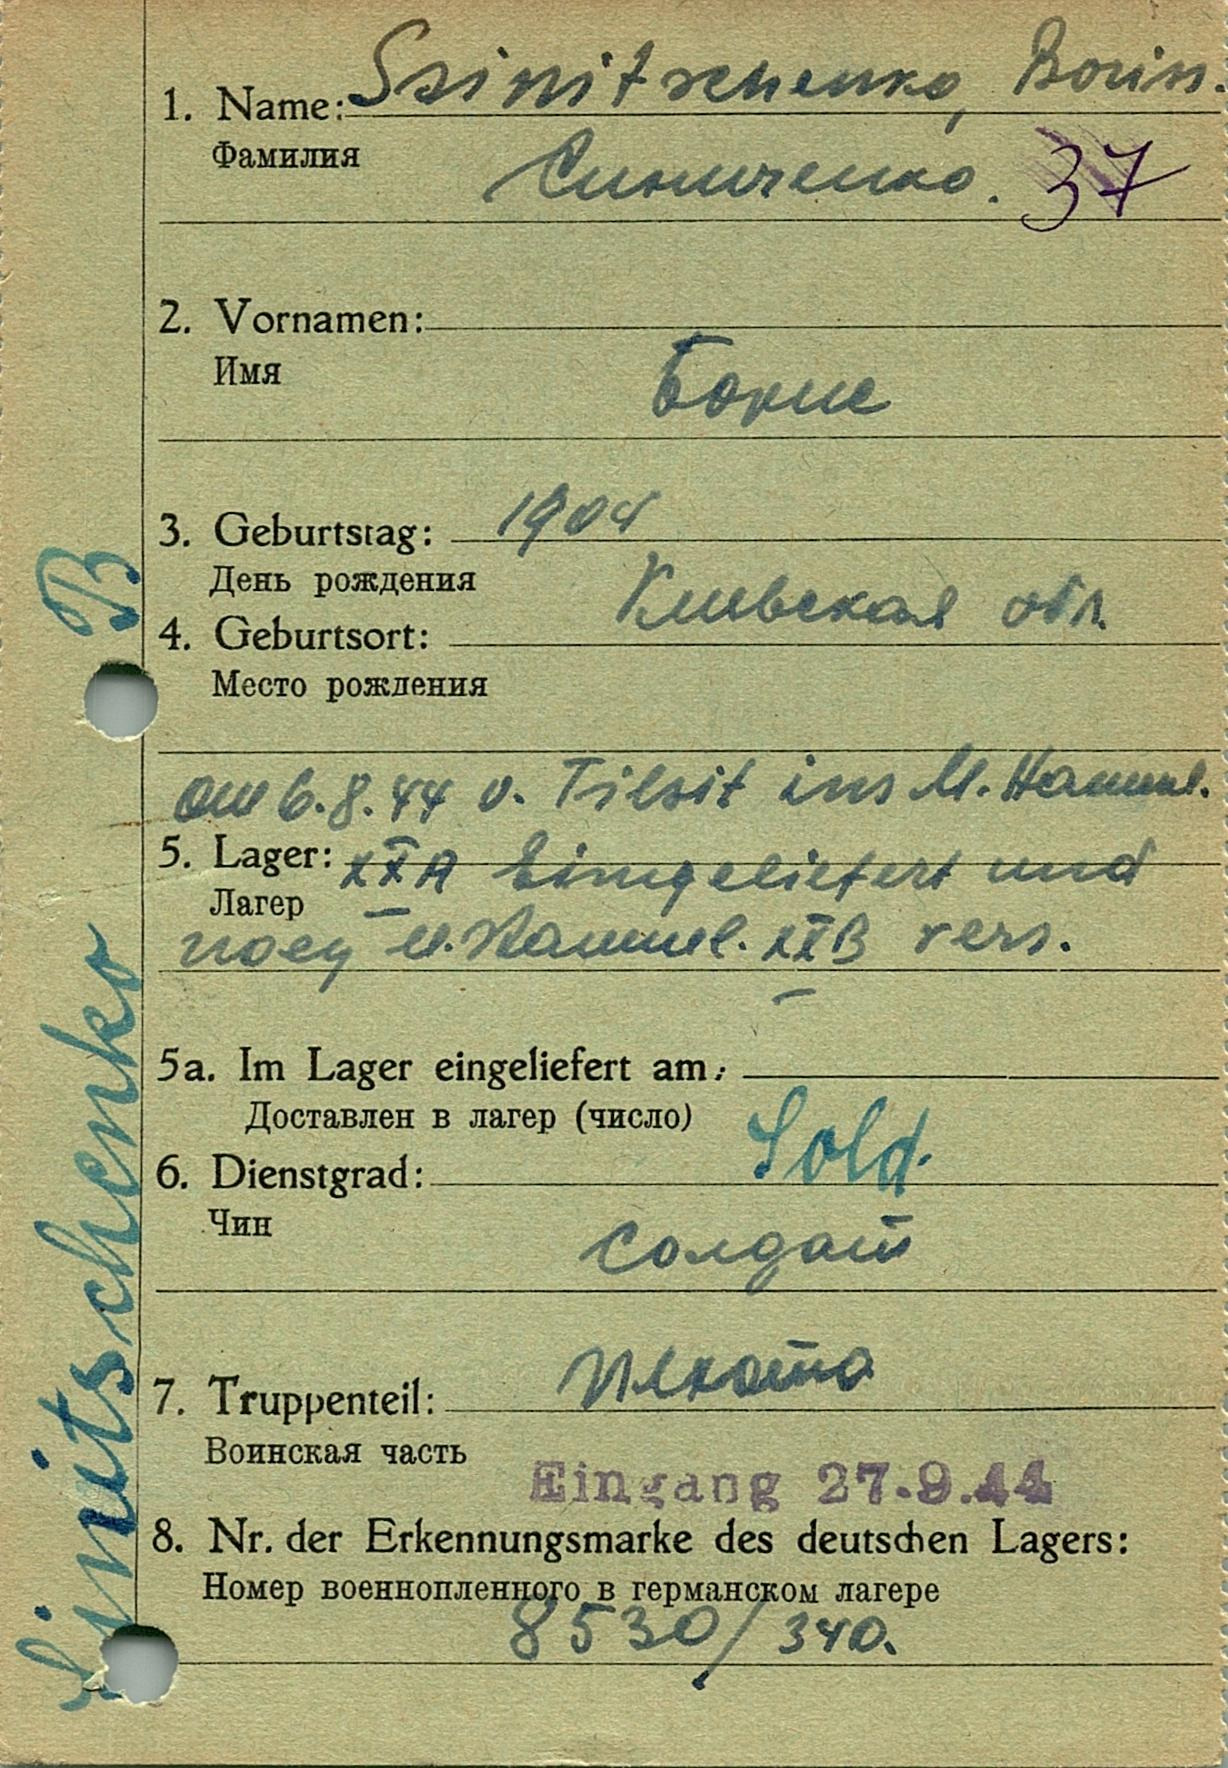 1. Name: Ssinitschenko, Boris.
Фамилия
Синиченко. 37
2. Vornamen:
Имя
Борис
3. Geburtstag: 1904
День рождения
Киевская обл.
4. Geburtsort:
Место рождения
am 6.8.44 v. Tilsit ins M. Stammel.
5. Lager: XXA Eingeliefert und
Лагер
M. Stammel. XXB vers.
5a. Im Lager eingeliefert am:
Доставлен в лагер (число)
Sold.
6. Dienstgrad:
Чин
солдат
Пехота
7. Truppenteil:
Воинская часть
Eingang 27.9.44
8. Nr. der Erkennungsmarke des deutschen Lagers:
Номер военнопленного в германском лагере
8530/340.
Sinitschenko B